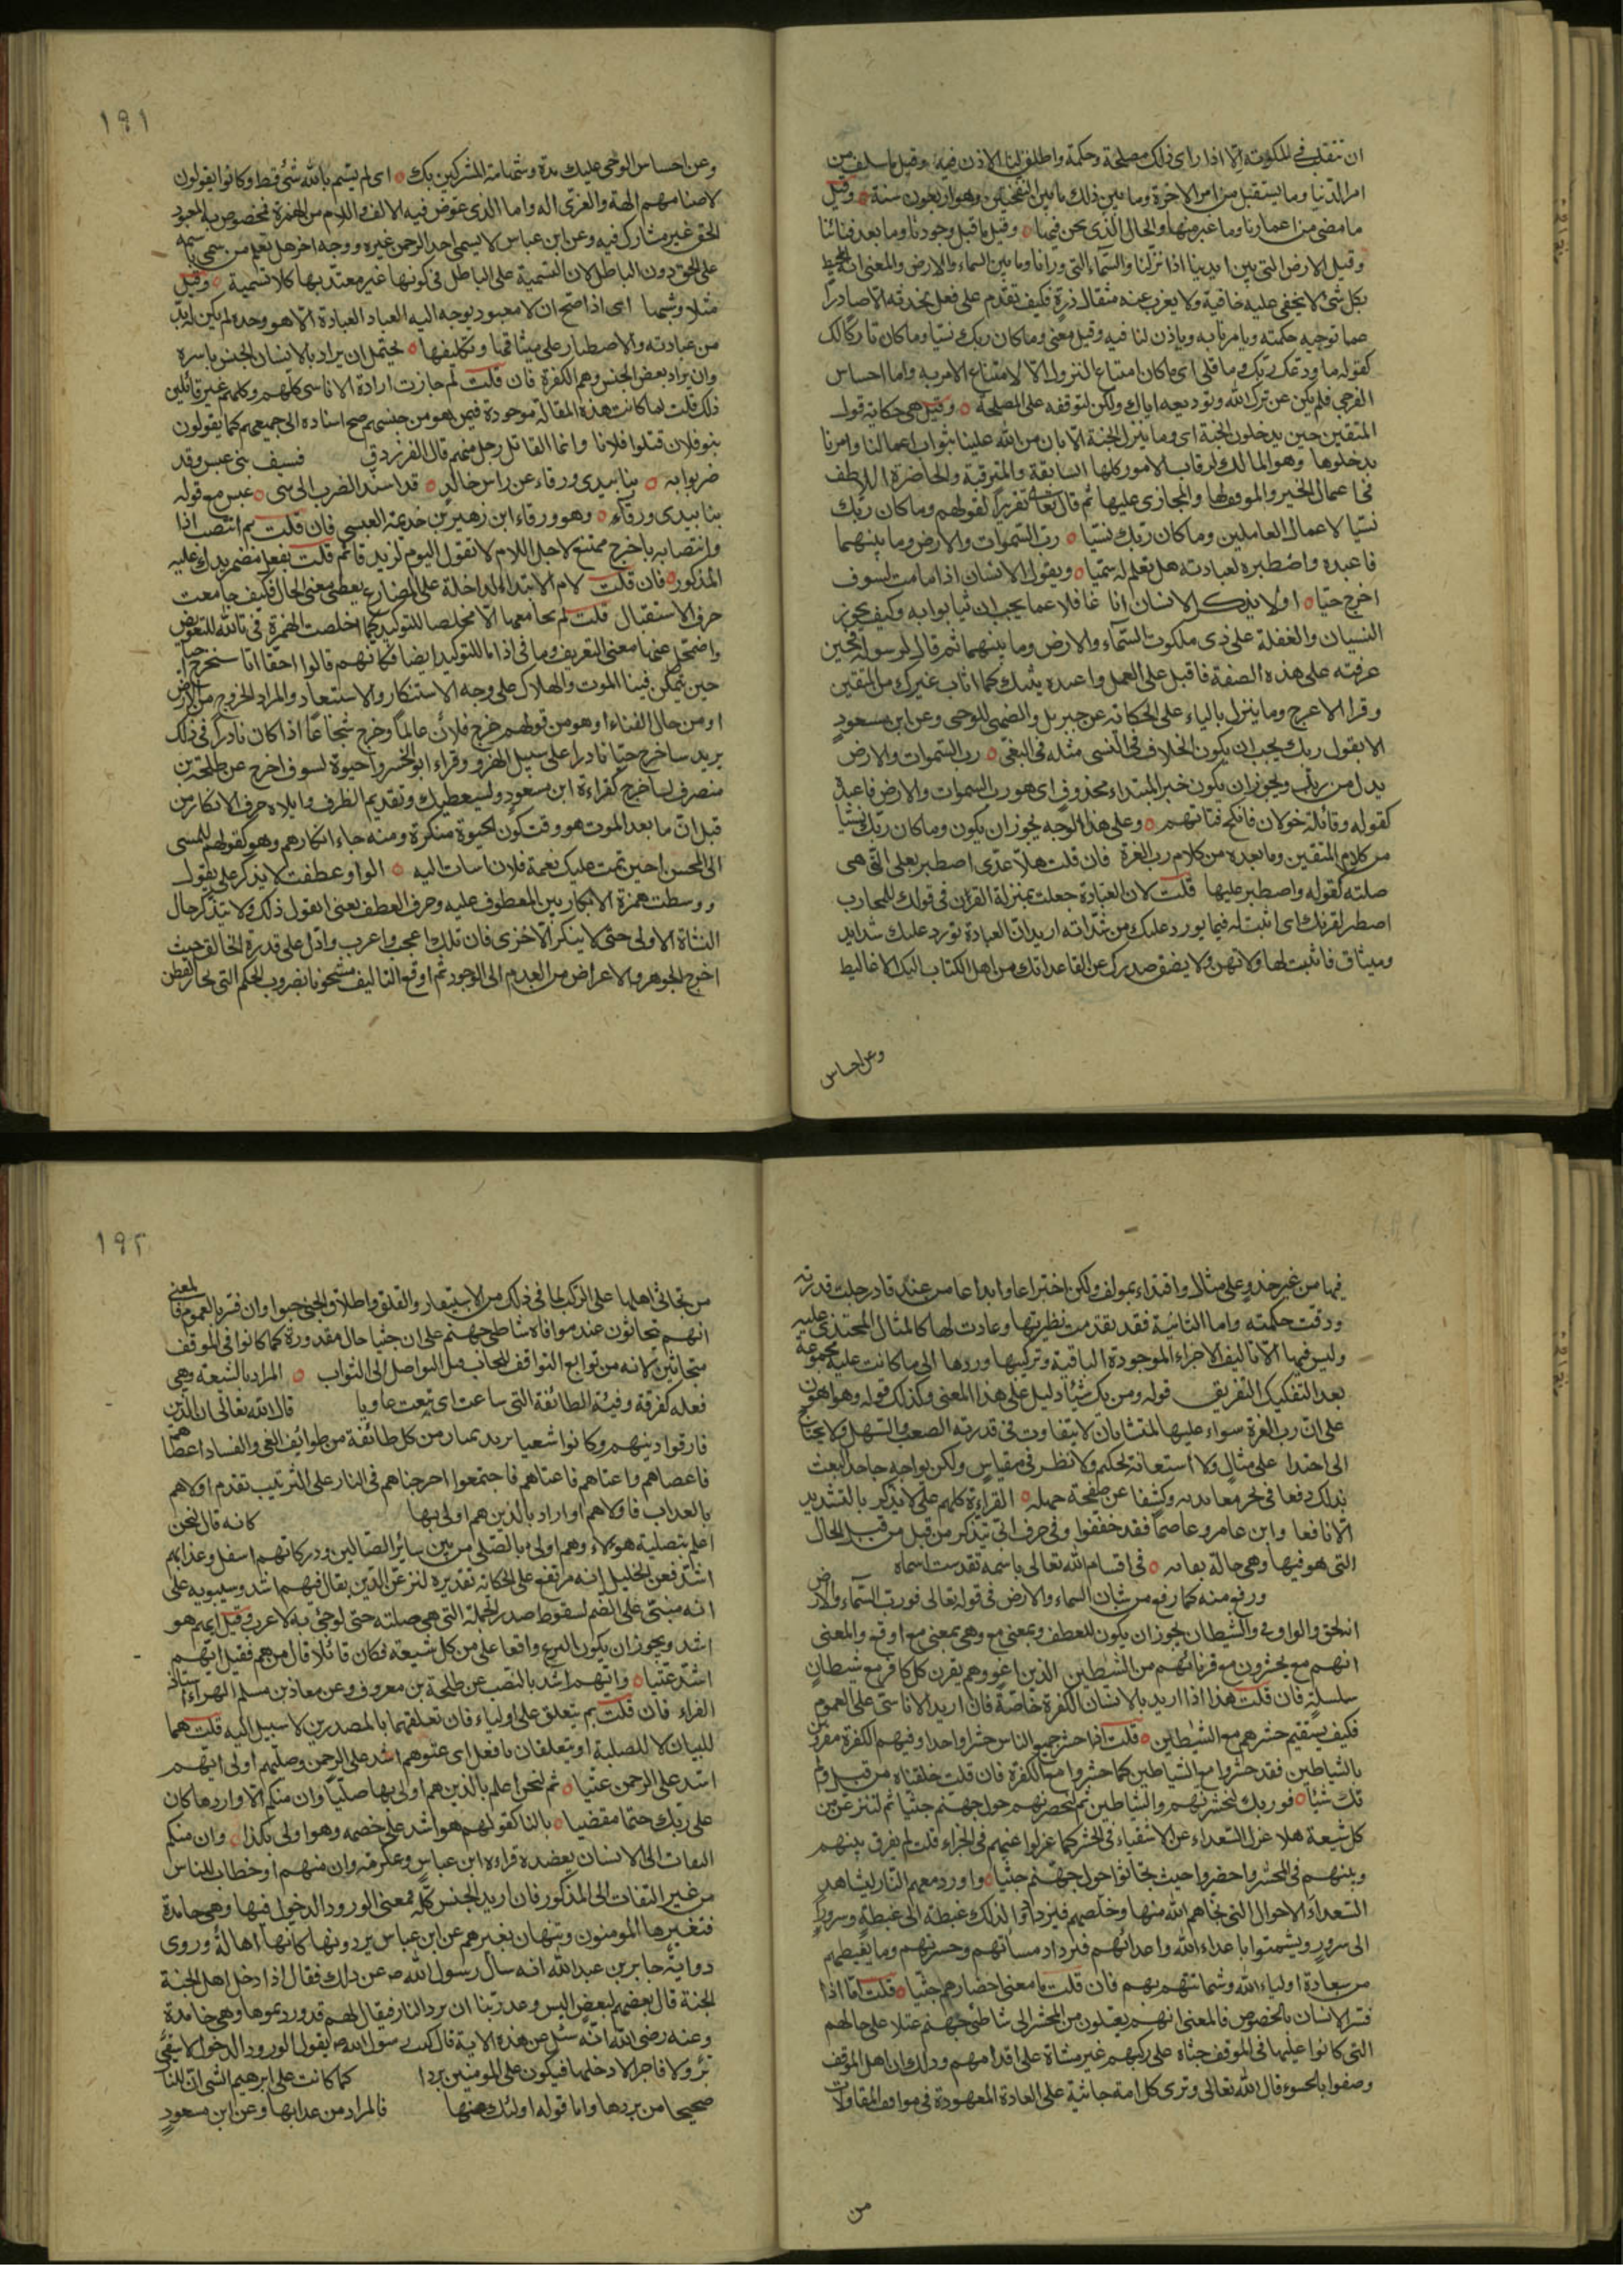 ان نتقلب في الملكوت الا اذا راى ذلك مصلحة وحكمة واطلق لنا الاذن فيه وقيل ما سلف من
امر الدنيا وما يستقبل من امر الاخرة وما بين ذلك ما بين النفختين وهو اربعون سنة وقيل
ما مضى من اعمارنا وما غبر منها والحال الذي نحن فيها وقيل ما قبل وجودنا وما بعد فنائنا
وقيل الارض التي بين ايدينا اذا نزلنا والسماء التي ورانا وما بين السماء والارض والمعنى انه المحيط
بكل شئ لا يخفى عليه خافية ولا يعزب عنه مثقال ذرة فكيف نقدم على فعل نحدثه الا صادرا
عما توجبه حكمته ويامرنا به وياذن لنا فيه وقيل معنى وما كان ربك نسيا وما كان تاركا لك
كقوله ما ودعك ربك وما قلى اى ما كان امتناع النزول الا لامتناع الامر به واما احتباس
الوحي فلم يكن عن ترك الله وتوديعه اياك ولكن لتوقفه على المصلحة وقيل هى حكاية قول
المتقين حين يدخلون الجنة اى وما ننزل الجنة الا بان من الله علينا بثواب اعمالنا وامرنا
بدخولها وهو المالك لرقاب الامور كلها السابقة والمترقبة والحاضرة اللاطف
في اعمال الخير والموفق لها والمجازى عليها ثم قال تعالى تقريرا لقولهم وما كان ربك
نسيا لاعمال العاملين وما كان ربك نسيا رب السموات والارض وما بينهما
فاعبده واصطبر لعبادته هل تعلم له سميا ويقول الانسان اذا ما مت لسوف
اخرج حيا اولا يذكر الانسان انا غافلا عما يجب ان يثابوا به وكيف يجوز
النسيان والغفلة على ذى ملكوت السماء والارض وما بينهما ثم قال لرسوله فحين
عرفته على هذه الصفة فاقبل على العمل واعبده يثبك كما اثاب غيرك من المتقين
وقرا الاعرج وما يتنزل بالياء على الحكاية عن جبريل والضمير للوحى وعن ابن مسعود
الا بقول ربك يجب ان يكون الخلاف في النسى مثله في البغى رب السموات والارض
بدل من ربك ويجوز ان يكون خبر المبتداء محذوف اى هو رب السموات والارض فاعبده
كقوله وقائلة خولان فانكح فتاتهم وعلى هذا الوجه يجوز ان يكون وما كان ربك نسيا
من كلام المتقين وما بعده من كلام رب العزة فان قلت هلا عدى اصطبر بعلى التى هى
صلته كقوله واصطبر عليها قلت لان العبادة جعلت بمنزلة القرن في قولك للمحارب
اصطبر لقرنك اى اثبت له فيما يورد عليك من شداته اريد ان العبادة تورد عليك شدايد
ومشاق فاثبت لها ولا تهن ولا يضق صدرك عن القاء عداتك من اهل الكتاب اليك الاغاليط
وعن احتباس
١٩١
وعن احتباس الوحى عليك مدة وشماتة المشركين بك اى لم يسم بالله شئ قط وكانوا يقولون
لاصنامهم الهة والعزى اله واما الذى عوض فيه الالف واللام من الهمزة فمخصوص به المعبود
الحق غير مشارك فيه وعن ابن عباس لا يسمى احد الرحمن غيره ووجه اخر هل تعلم من سمى باسمه
على الحق دون الباطل لان التسمية على الباطل في كونها غير معتد بها كلا تسمية وقيل
مثلا وشبيها اى اذا صح ان لا معبود يوجه اليه العباد العبادة الا هو وحده لم يكن له بد
من عبادته والاصطبار على مشاقها وتكليفها يحتمل ان يراد بالانسان الجنس باسره
وان يراد بعض الجنس وهم الكفرة فان قلت لم جازت ارادة الاناسى كلهم وكلهم غير قائلين
ذلك قلت لما كانت هذه المقالة موجودة فيمن هو من جنسهم صح اسناده الى جميعهم كما يقولون
بنو فلان قتلوا فلانا وانما القاتل رجل منهم قال الفرزدق فسيف بنى عبس وقد
ضربوا به نبا بيدى ورقاء عن راس خالد قد اسند الضرب الى بنى عبس مع قوله
نبا بيدى ورقاء وهو ورقاء ابن زهير بن خديمة العبسى فان قلت بم انتصب اذا
وانتصابه باخرج ممتنع لاجل اللام لا تقول اليوم لزيد قائم قلت بفعل مضمر يدل عليه
المذكور فان قلت لام الابتداء الداخلة على المضارع يعطى معنى الحال فكيف جامعت
حرف الاستقبال قلت لم يجامعها الا مخلصا للتوكيد كما اخلصت الهمزة في ياالله للتعويض
واضمحل عنها معنى التعريف وما في اذا ما للتوكيد ايضا فكانهم قالوا احقا انا سنخرج حيا
حين يتمكن فينا الموت والهلاك على وجه الاستنكار والاستبعاد والمراد الخروج من الارض
او من حال الفناء او هو من قولهم خرج فلان عالما وخرج شجاعا اذا كان نادرا في ذلك
يريد ساخرج حيا نادرا على سبيل الهزو وقراء ابو الحسن وابو حيوة لسوف اخرج عن طلحة بن
منصرف لساخرج كقراءة ابن مسعود ولسيعطيك وتقديم الظرف وايلاه حرف الانكار من
قبل ان ما بعد الموت هو وقت كون الحيوة منكرة ومنه جاء انكارهم وهو كقولهم للمسى
الى المحسن احين تمت عليك نعمة فلان اسات اليه الواو عطفت لا يذكر على يقول
ووسطت همزة الانكار بين المعطوف عليه وحرف العطف يعنى ايقول ذلك ولا يتذكر حال
النشاة الاولى حتى لا ينكر الاخرى فان تلك اعجب واغرب وادل على قدرة الخالق حيث
اخرج الجوهر والاعراض من العدم الى الوجود ثم اوقع التاليف مشحونا بضروب الحكم التى تحار الفطن
فيها من غير حذو على مثال واقتداء بمولف ولكن اختراعا وابداعا من عند قادر جلت قدرته
ودقت حكمته واما الثانية فقد تقدمت نظيرتها وعادت لها كالمثال المحتذى عليه
وليس فيها الا تاليف الاجزاء الموجودة الباقية وتركيبها وردها الى ما كانت عليه مجموعة
بعد التفكيك والتفريق قوله ولم يك شيئا دليل على هذا المعنى وكذلك قوله وهو اهون
على ان رب العزة سواء عليها المتشابان لا يتفاوت في قدرته الصعب والسهل ولا يحتاج
الى احتذا على مثال ولا استعانة بحكيم ولا نظر في مقياس ولكن يواجه جاحد البعث
بذلك دفعا في نحر معانده وكشفا عن صفحة جهله القراءة كلهم على لا يذكر بالتشديد
الا نافعا وابن عامر وعاصما فقد خففوا وفى حرف ابى يتذكر من قبل من قبل الحال
التى هو فيها وهى حالة بقائه في اقسام الله تعالى باسمه تقدست اسماه
ورفع منه كما رفع من شان السماء والارض في قوله تعالى فورب السماء والارض
انه لحق والواو في والشيطان يجوز ان يكون للعطف وبمعنى مع وهى بمعنى مع اوقع والمعنى
انهم مع يحشرون مع قرنائهم من الشياطين الذين اغووهم يقرن كل كافر مع شيطان
سلسلة فان قلت هذا اذا اريد بالانسان الكفرة خاصة فان اريد الاناسى على العموم
فكيف يستقيم حشرهم مع الشيطين قلت اذا حشر جميع الناس حشرا واحدا وفيهم الكفرة مقرونين
بالشياطين فقد حشروا مع الشياطين كما حشروا مع الكفرة فان قلت خلقناه من قبل ولم
تك شيئا فوربك لنحشرنهم والشياطين ثم لنحضرنهم حول جهنم جثيا ثم لننزعن من
كل شيعة هلا عزل السعداء عن الاشقياء في الحشر كما عزلوا عنهم في الجزاء قلت لم يفرق بينهم
وبينهم في المحشر واحضروا حيث تجاثوا حول جهنم جثيا واورد معهم النار ليشاهد
السعداء الاحوال التى نجاهم الله منها وخلصهم فيزدادوا لذلك غبطة الى غبطة وسرورا
الى سرور ويشمتوا باعداء الله واعدائهم فتزداد مساتهم وحسرتهم وما يغيظهم
من سعادة اولياء الله وشماتتهم بهم فان قلت ما معنى احضارهم جثيا قلت اما اذا
فسر الانسان بالخصوص فالمعنى انهم يقبلون من المحشر الى شاطئ جهنم عتلا على حالهم
التى كانوا عليها في الموقف جثاة على ركبهم غير مشاة على اقدامهم وذلك ان اهل الموقف
وصفوا بالجثو قال الله تعالى وترى كل امة جاثية على العادة المعهودة في مواقف المقاولات
من
١٩٢
من تجاثى اهلها على الركب لما في ذلك من الاستيفاز والقلق واطلاق الحبى حبوا وان فسر بالعموم فالمعنى
انهم تجاثون عند موافاة شاطئ جهنم على ان جثيا حال مقدورة كما كانوا في الموقف
متجاثين لانه من توابع التواقف للحساب قبل التواصل الى الثواب المراد بالشيعة وهى
فعلة كفرقة وفية الطائفة التى شاعت اى تبعت غاويا قال الله تعالى ان الذين
فارقوا دينهم وكانوا شعيا يريد نمتار من كل طائفة من طوائف الغى والفساد اعصاهم
فاعصاهم واعتاهم فاعتاهم فاجتمعوا احرجناهم في النار على الترتيب تقدم اولاهم
بالعذاب فاولاهم او اراد بالذين هم اولى بها كانه قال لنحن
اعلم بتصلية هولاء وهم اولى بالصلى من بين سائر الصالين ودركاتهم اسفل وعذابهم
اشد فعن الخليل انه مرتفع على الحكاية تقديره لننزعن الذين يقال فيهم اشد وسيبويه على
انه مبنى على الضم لسقوط صدر الجملة التى هى صلته حتى لو جئ به لاعرب وقيل ايهم هو
اشد ويجوز ان يكون النزع واقعا على من كل شيعة فكان قائلا قال من هم فقيل ايهم
اشد عتيا وايهم اشد بالنصب عن طلحة بن معروف وعن معاذ بن مسلم الهراء استاذ
الفراء فان قلت بم يتعلق على اولياء فان تعلقهما بالمصدرين لا سبيل اليه قلت هما
للبيان لا للصلية او يتعلقان بافعل اى عتوهم اشد على الرحمن وصليهم اولى ايهم
اشد على الرحمن عتيا ثم لنحن اعلم بالذين هم اولى بها صليا وان منكم الا واردها كان
على ربك حتما مقضيا بالنا كقولهم هو اشد على خصمه وهو اولى بكذا وان منكم
التفات الى الانسان يعضده قراءة ابن عباس وعكرمة وان منهم او خطاب للناس
من غير التفات الى المذكور فان اريد الجنس كله فمعنى الورود الدخول فيها وهى جامدة
فتعبرها المؤمنون وتنهار بغيرهم عن ابن عباس يردونها كانها اهالة وروى
دواية جابر بن عبد الله انه سال رسول الله ص عن ذلك فقال اذا دخل اهل الجنة
الجنة قال بعضهم لبعض اليس وعد ربنا ان نرد النار فيقال لهم قد وردتموها وهى خامدة
وعنه رضى الله انه سئل عن هذه الاية قال كنت رسول الله ص يقول الورود الدخول لا يبقى
بر ولا فاجر الا دخلها فيكون على المومنين بردا كما كانت على ابرهيم الشى ان للنا
صحيحا من بردها واما قوله اولئك عنها فالمراد من عذابها وعن ابن مسعود